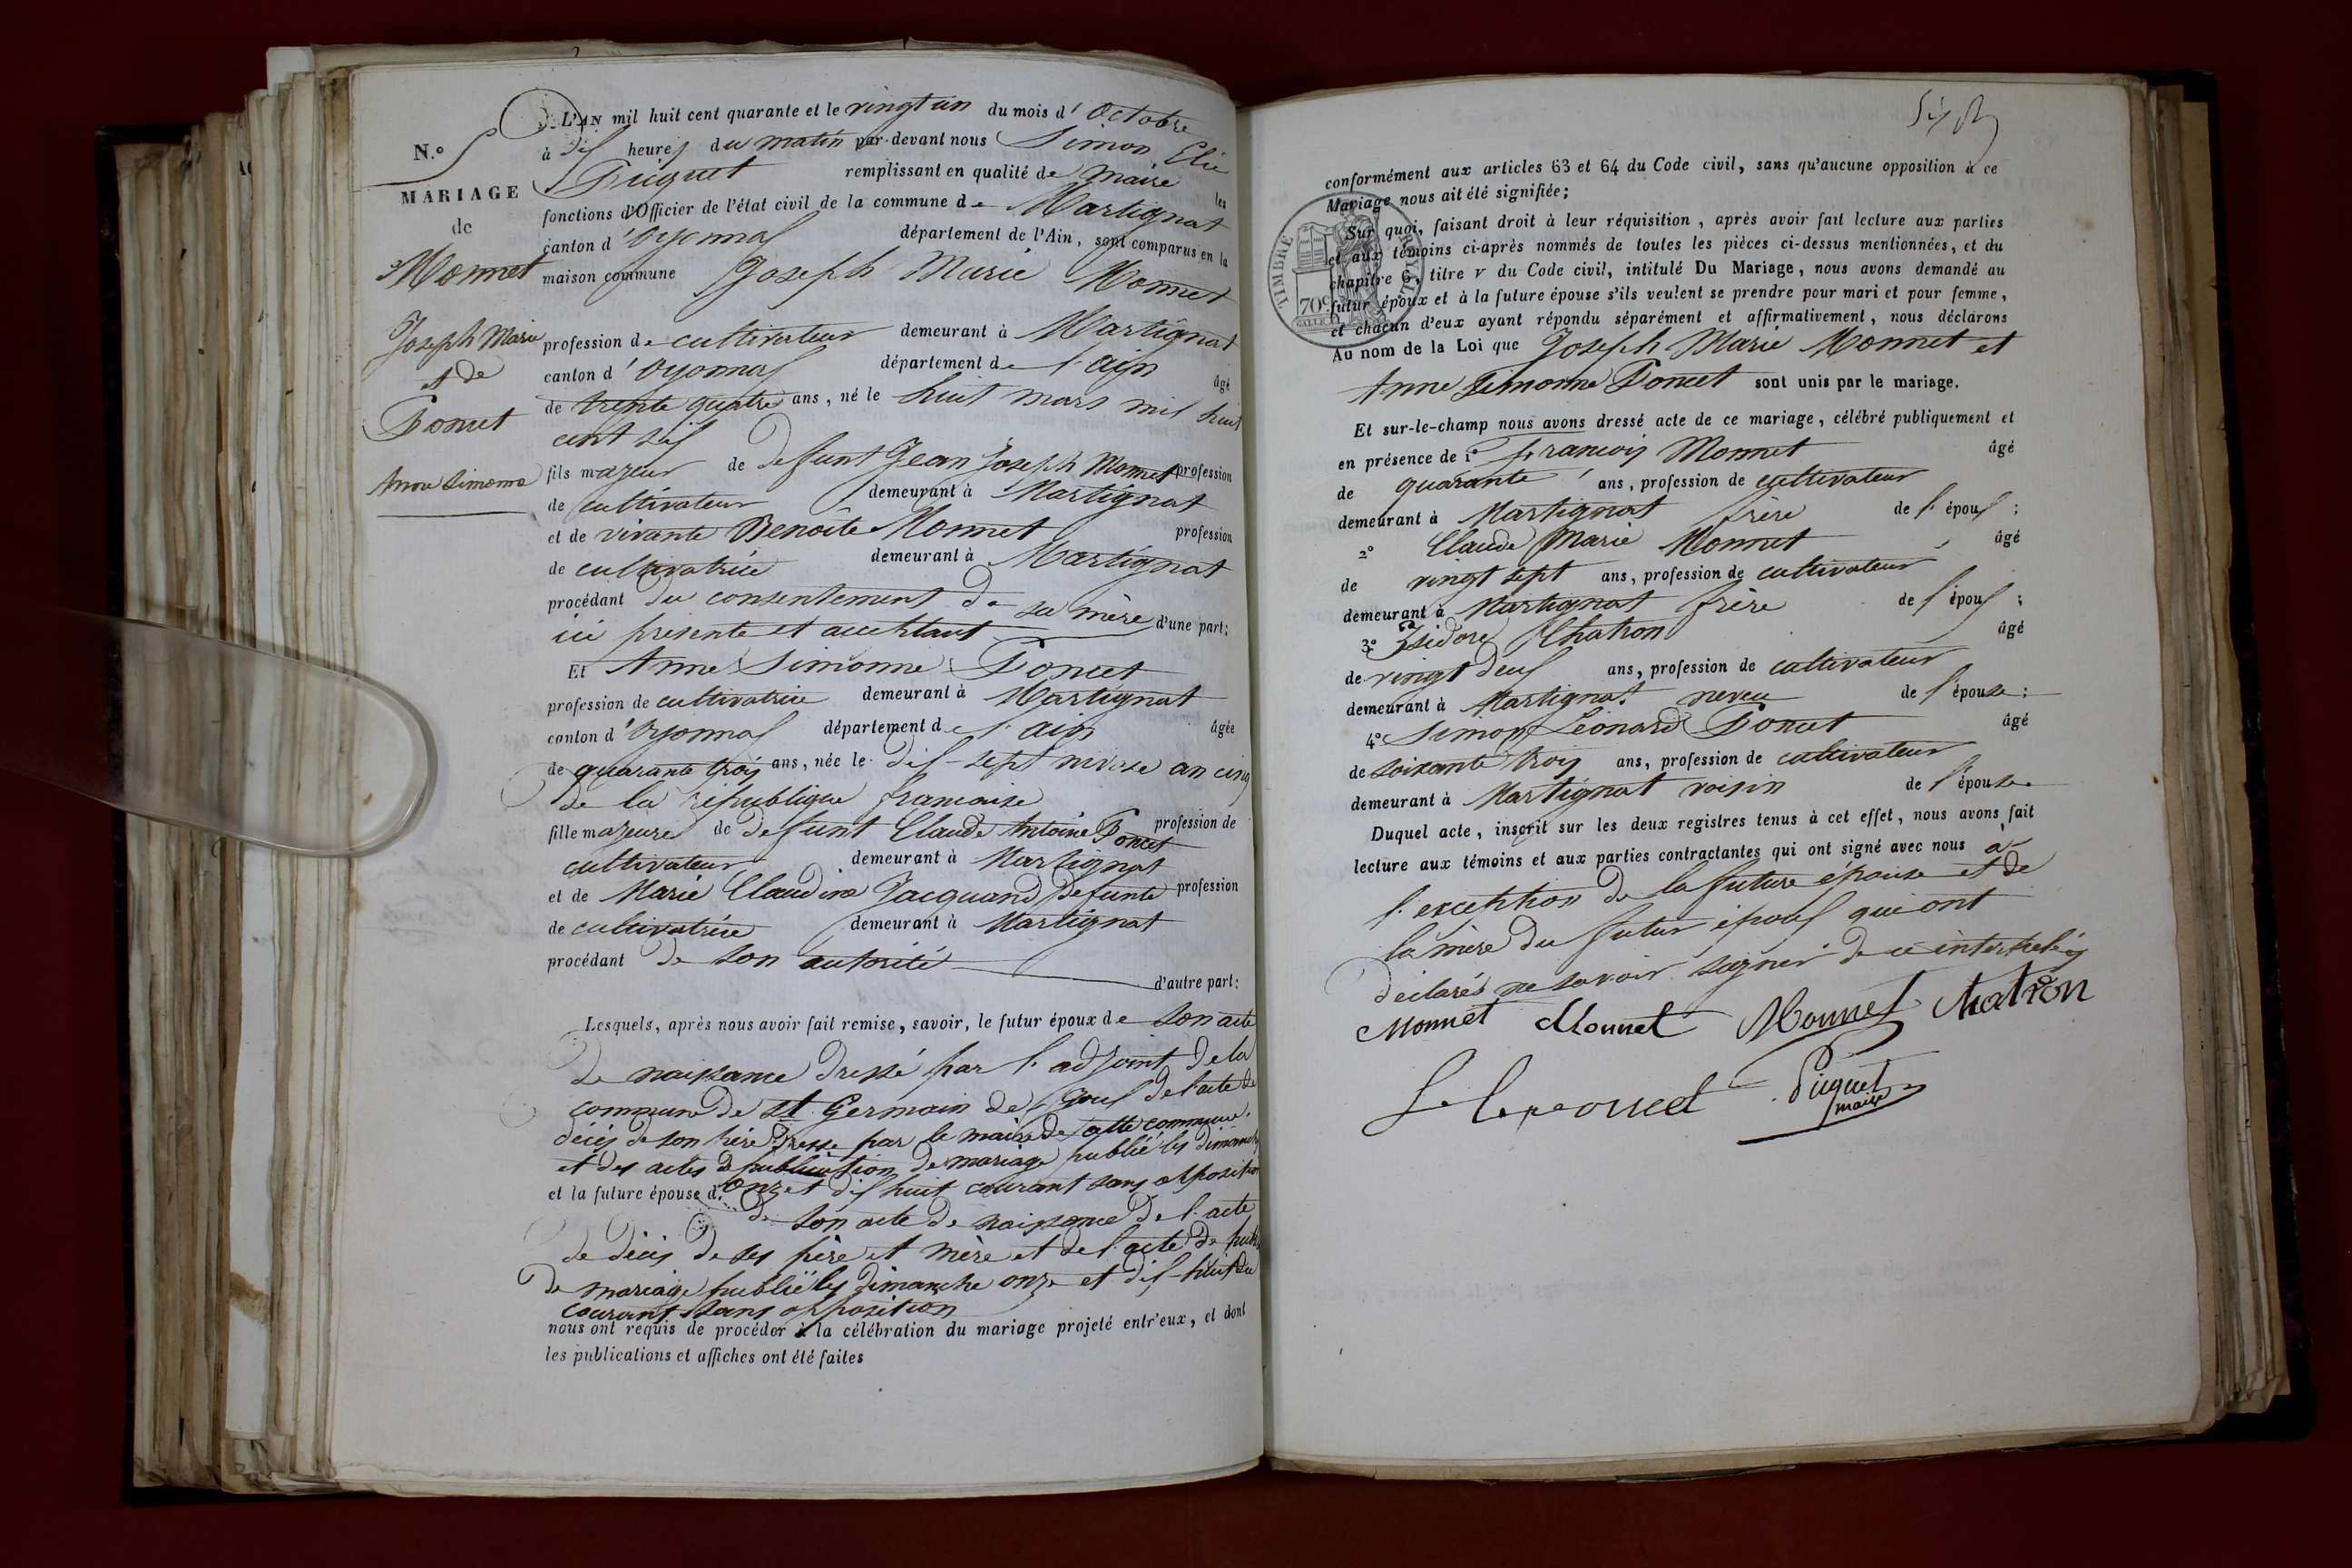 L'AN mil huit cent quarante et le vingt un du mois d'Octobre
à dix heures du matin par-devant nous Simon Elie
Puquet remplissant en qualité de maire les
N.o
MARIAGE
de
Monnet
Joseph Marie
et de
Poncet
Anne Simonne
fonctions d'Officier de l'état civil de la commune de Martignat
canton d'Oyonnax département de l'Ain, sont comparus en la
maison commune Joseph Marie Monnet
profession de cultivateur demeurant à Martignat
canton d'Oyonnax département de l'ain âgé
de trente quatre ans, né le huit mars mil huit
cent six
fils majeur de defunt Jean Joseph Monnet profession
de cultivateur demeurant à Martignat
et de vivante Benoîte Monnet profession
de cultivatrice demeurant à Martignat
procédant du consentement de sa mère d'une part;
ici presente et acceptant
Et Anne Simonne Poncet
profession de cultivatrice demeurant à Martignat
canton d'Oyonnax département de l'ain âgée
de quarante trois ans, née le dix-sept nivose an cinq
de la république francaise
fille majeure de defunt Claude Antoine Poncet profession de
cultivateur demeurant à Martignat
et de Marie Claudine Jacquand defunte profession
de cultivatrice demeurant à Martignat
procédant de son autorité
d'autre part:
Lesquels, après nous avoir fait remise, savoir, le futur époux de son acte
de naissance dressé par l'adjoint de la
commune de St Germain de Joux de l'acte de
décès de son père dressé par le maire de cette commune.
et des actes de publication de mariage publié les dimanche
onze et dix huit courant sans opposition
et la future épouse d.
de son acte de naissance de l'acte
de décès de ses père et mère et de l'acte de publ
de mariage publié les dimanche onze et dix-huit du
courant sans opposition
nous ont requis de procéder à la célébration du mariage projeté entr'eux, et dont
les publications et affiches ont été faites
conformément aux articles 63 et 64 du Code civil, sans qu'aucune opposition à ce
Mariage nous ait été signifiée;
TIMBRE ROYAL
70c
Sur quoi, faisant droit à leur réquisition, après avoir fait lecture aux parties
et aux témoins ci-après nommés de toutes les pièces ci-dessus mentionnées, et du
chapitre 6, titre v du Code civil, intitulé Du Mariage, nous avons demandé au
futur époux et à la future épouse s'ils veulent se prendre pour mari et pour femme,
et chacun d'eux ayant répondu séparément et affirmativement, nous déclarons
Au nom de la Loi que Joseph Marie Monnet et
Anne Simonne Poncet sont unis par le mariage.
Et sur-le-champ nous avons dressé acte de ce mariage, célébré publiquement et
en présence de 1o francois Monnet âgé
de quarante ans, profession de cultivateur
demeurant à Martignat frère de l'époux;
2o Claude Marie Monnet âgé
de vingt sept ans, profession de cultivateur
demeurant à Martignat frère de l'époux;
3o Isidore Chatron âgé
de vingt deux ans, profession de cultivateur
demeurant à Martignat neveu de l'épouse;
4o Simon Léonard Poncet âgé
de soixante trois ans, profession de cultivateur
demeurant à Martignat voisin de l'épouse.
Duquel acte, inscrit sur les deux registres tenus à cet effet, nous avons fait
lecture aux témoins et aux parties contractantes qui ont signé avec nous à
l'exception de la future épouse et de
la mère du futur époux qui ont
déclarés ne savoir signer de ce interpelés
Monnet Monnet Monnet Chatron
Puquet
maire